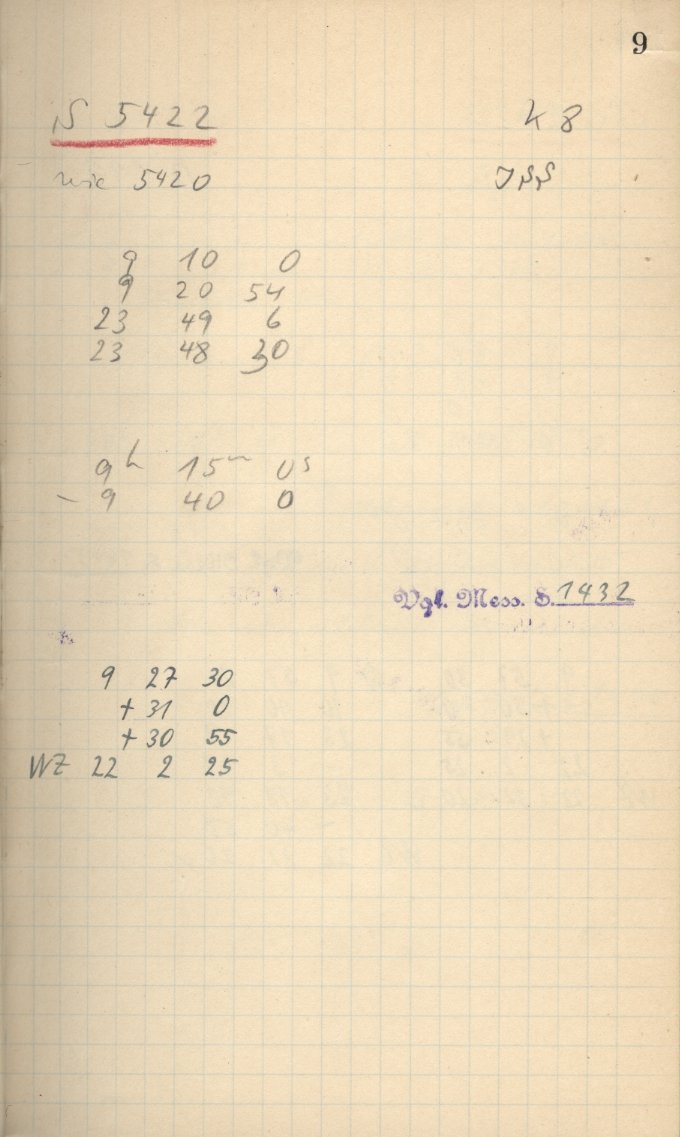 9
S 5422 K 8
wie 5420
9 10 0
9 20 54
23 49 6
23 48 30
9h 15m 0s
– 9 40 0
Vgl. Mess. S. 1432
9 27 30
+ 31 0
+ 30 55
WZ 22 2 25